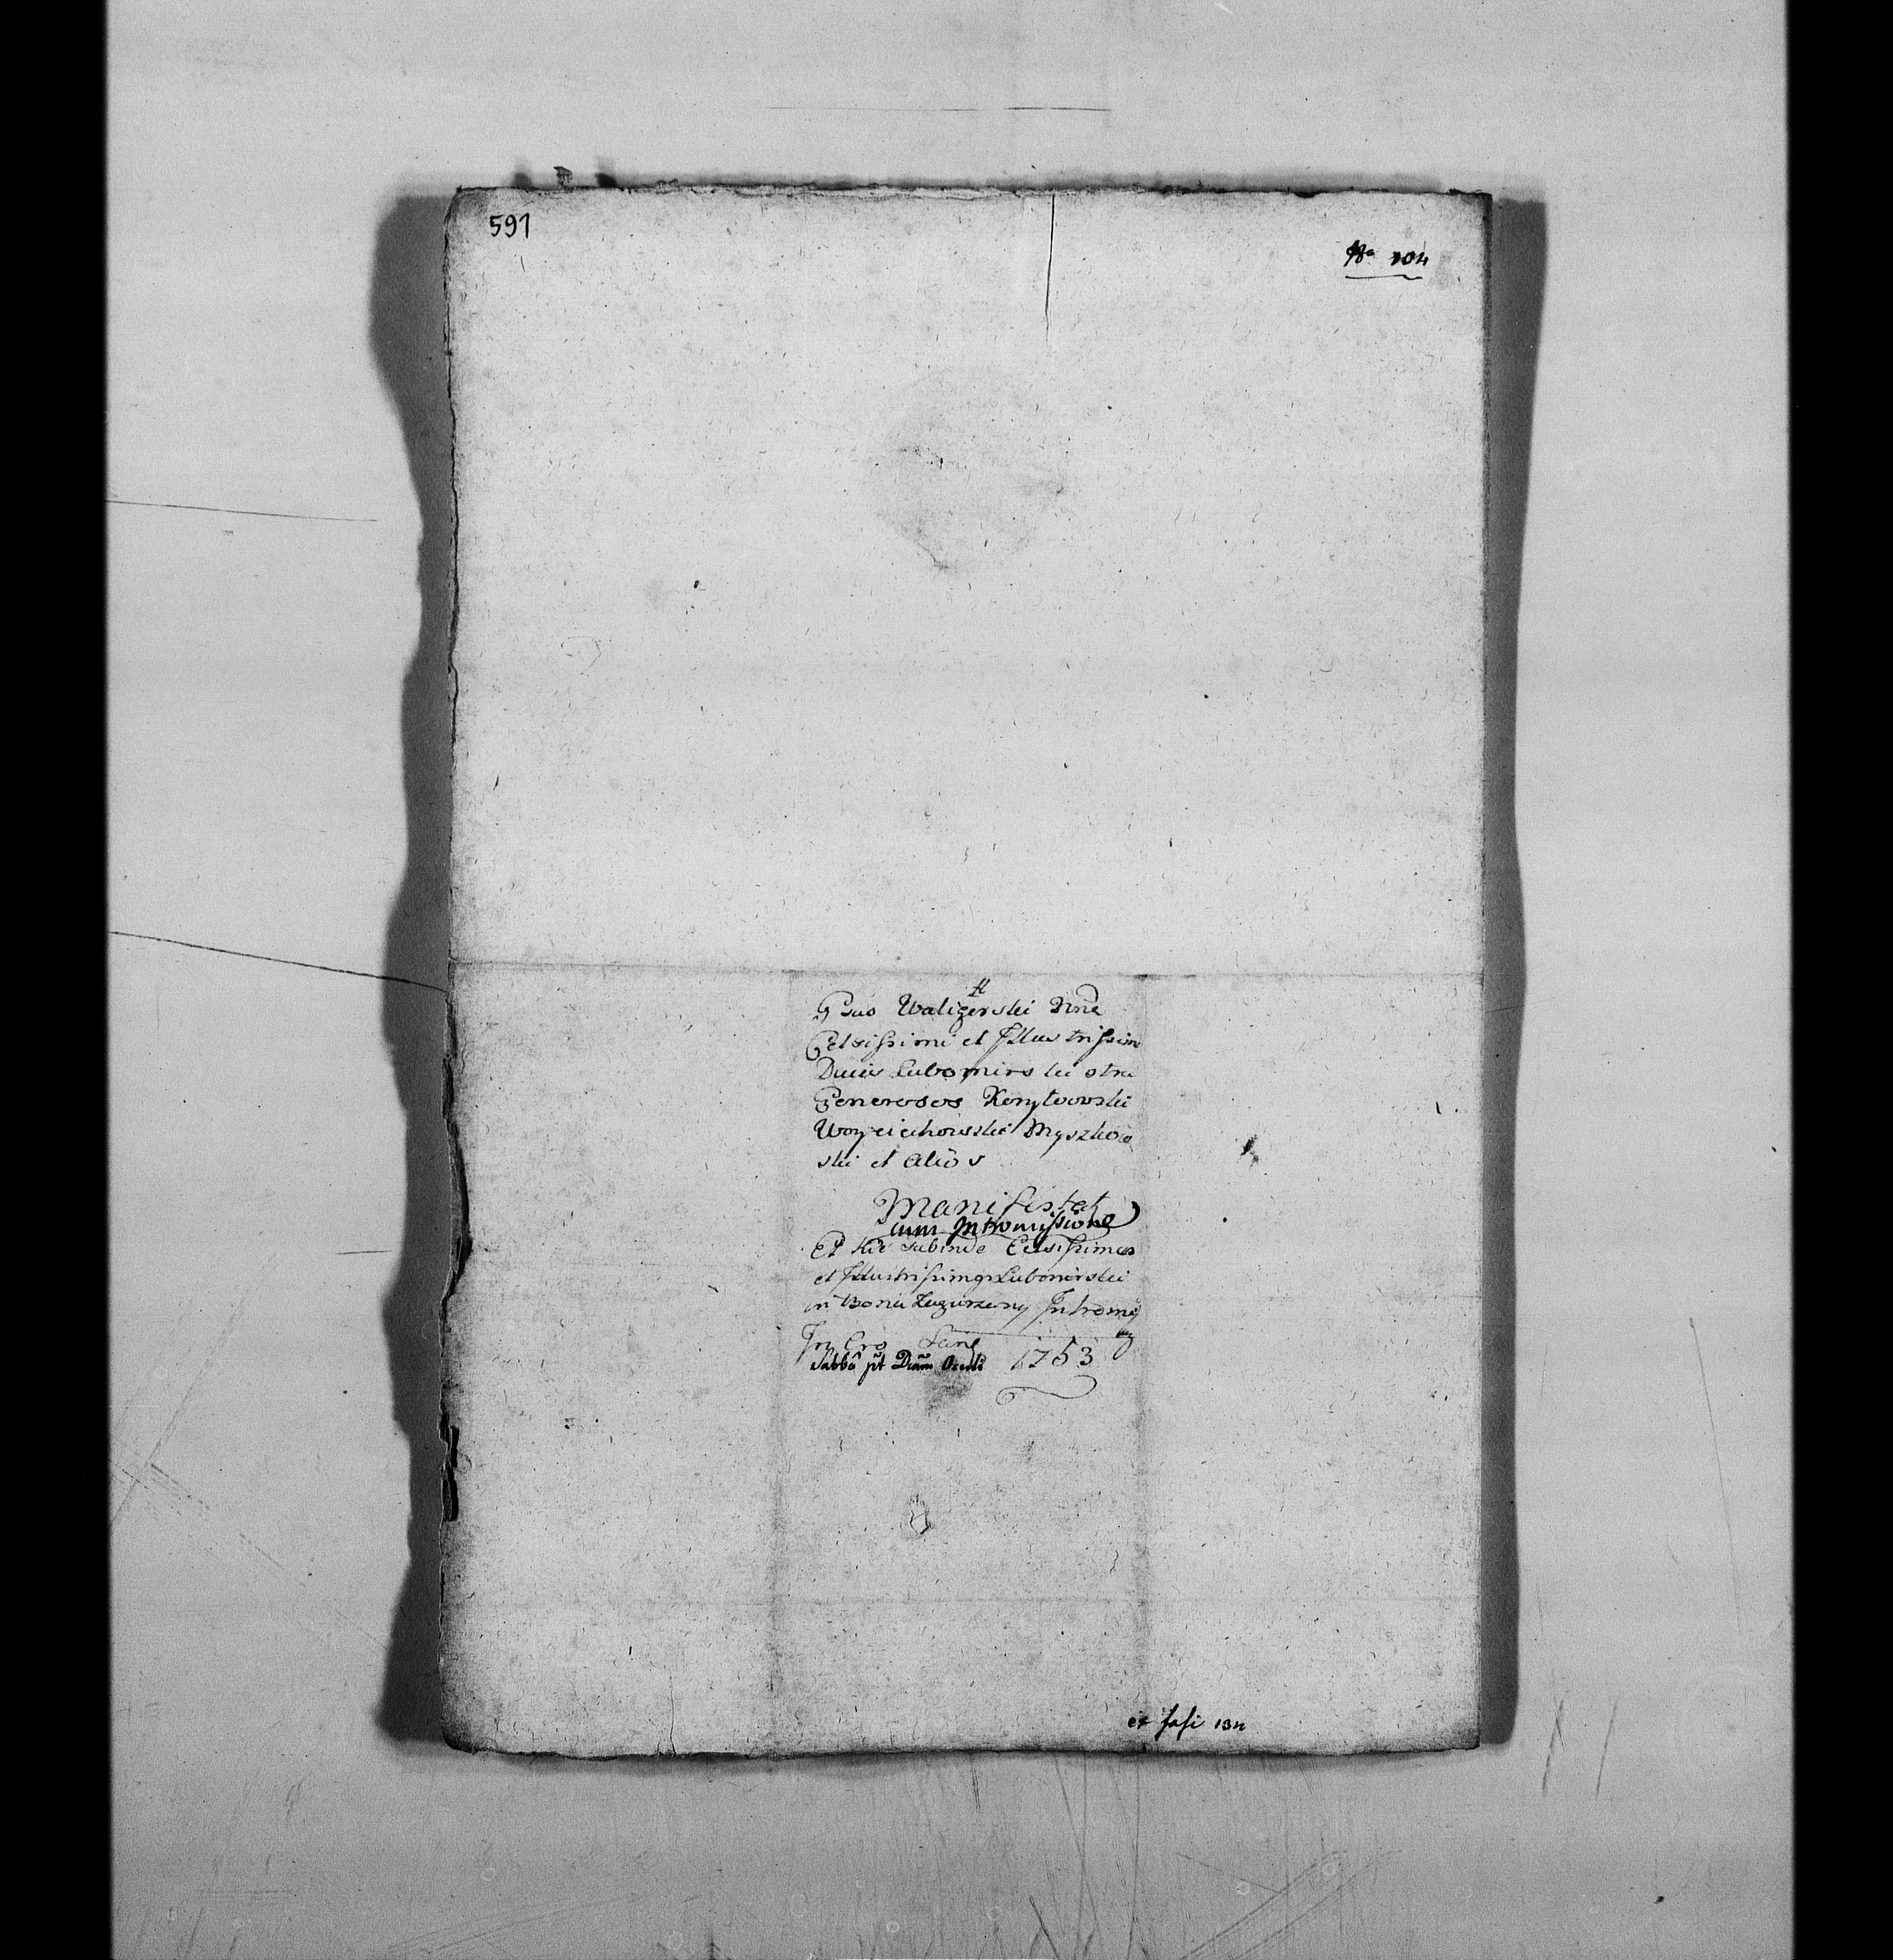 591
No 104
Gsus Walizerski Nne
Celsissimi et Illustrissim
Ducis Lubomirski ctra
Generosos Korytowski
Woyciechowski Myszkow
ski et alios
Manifestat
cum Intromissione
Et hic subinde Celsissimus
et Illustrissimqs Lubomirski
in Bona Intromi
In Cro Sane
Sabbo pt Dnam Oculi 1753
ex fasi 134